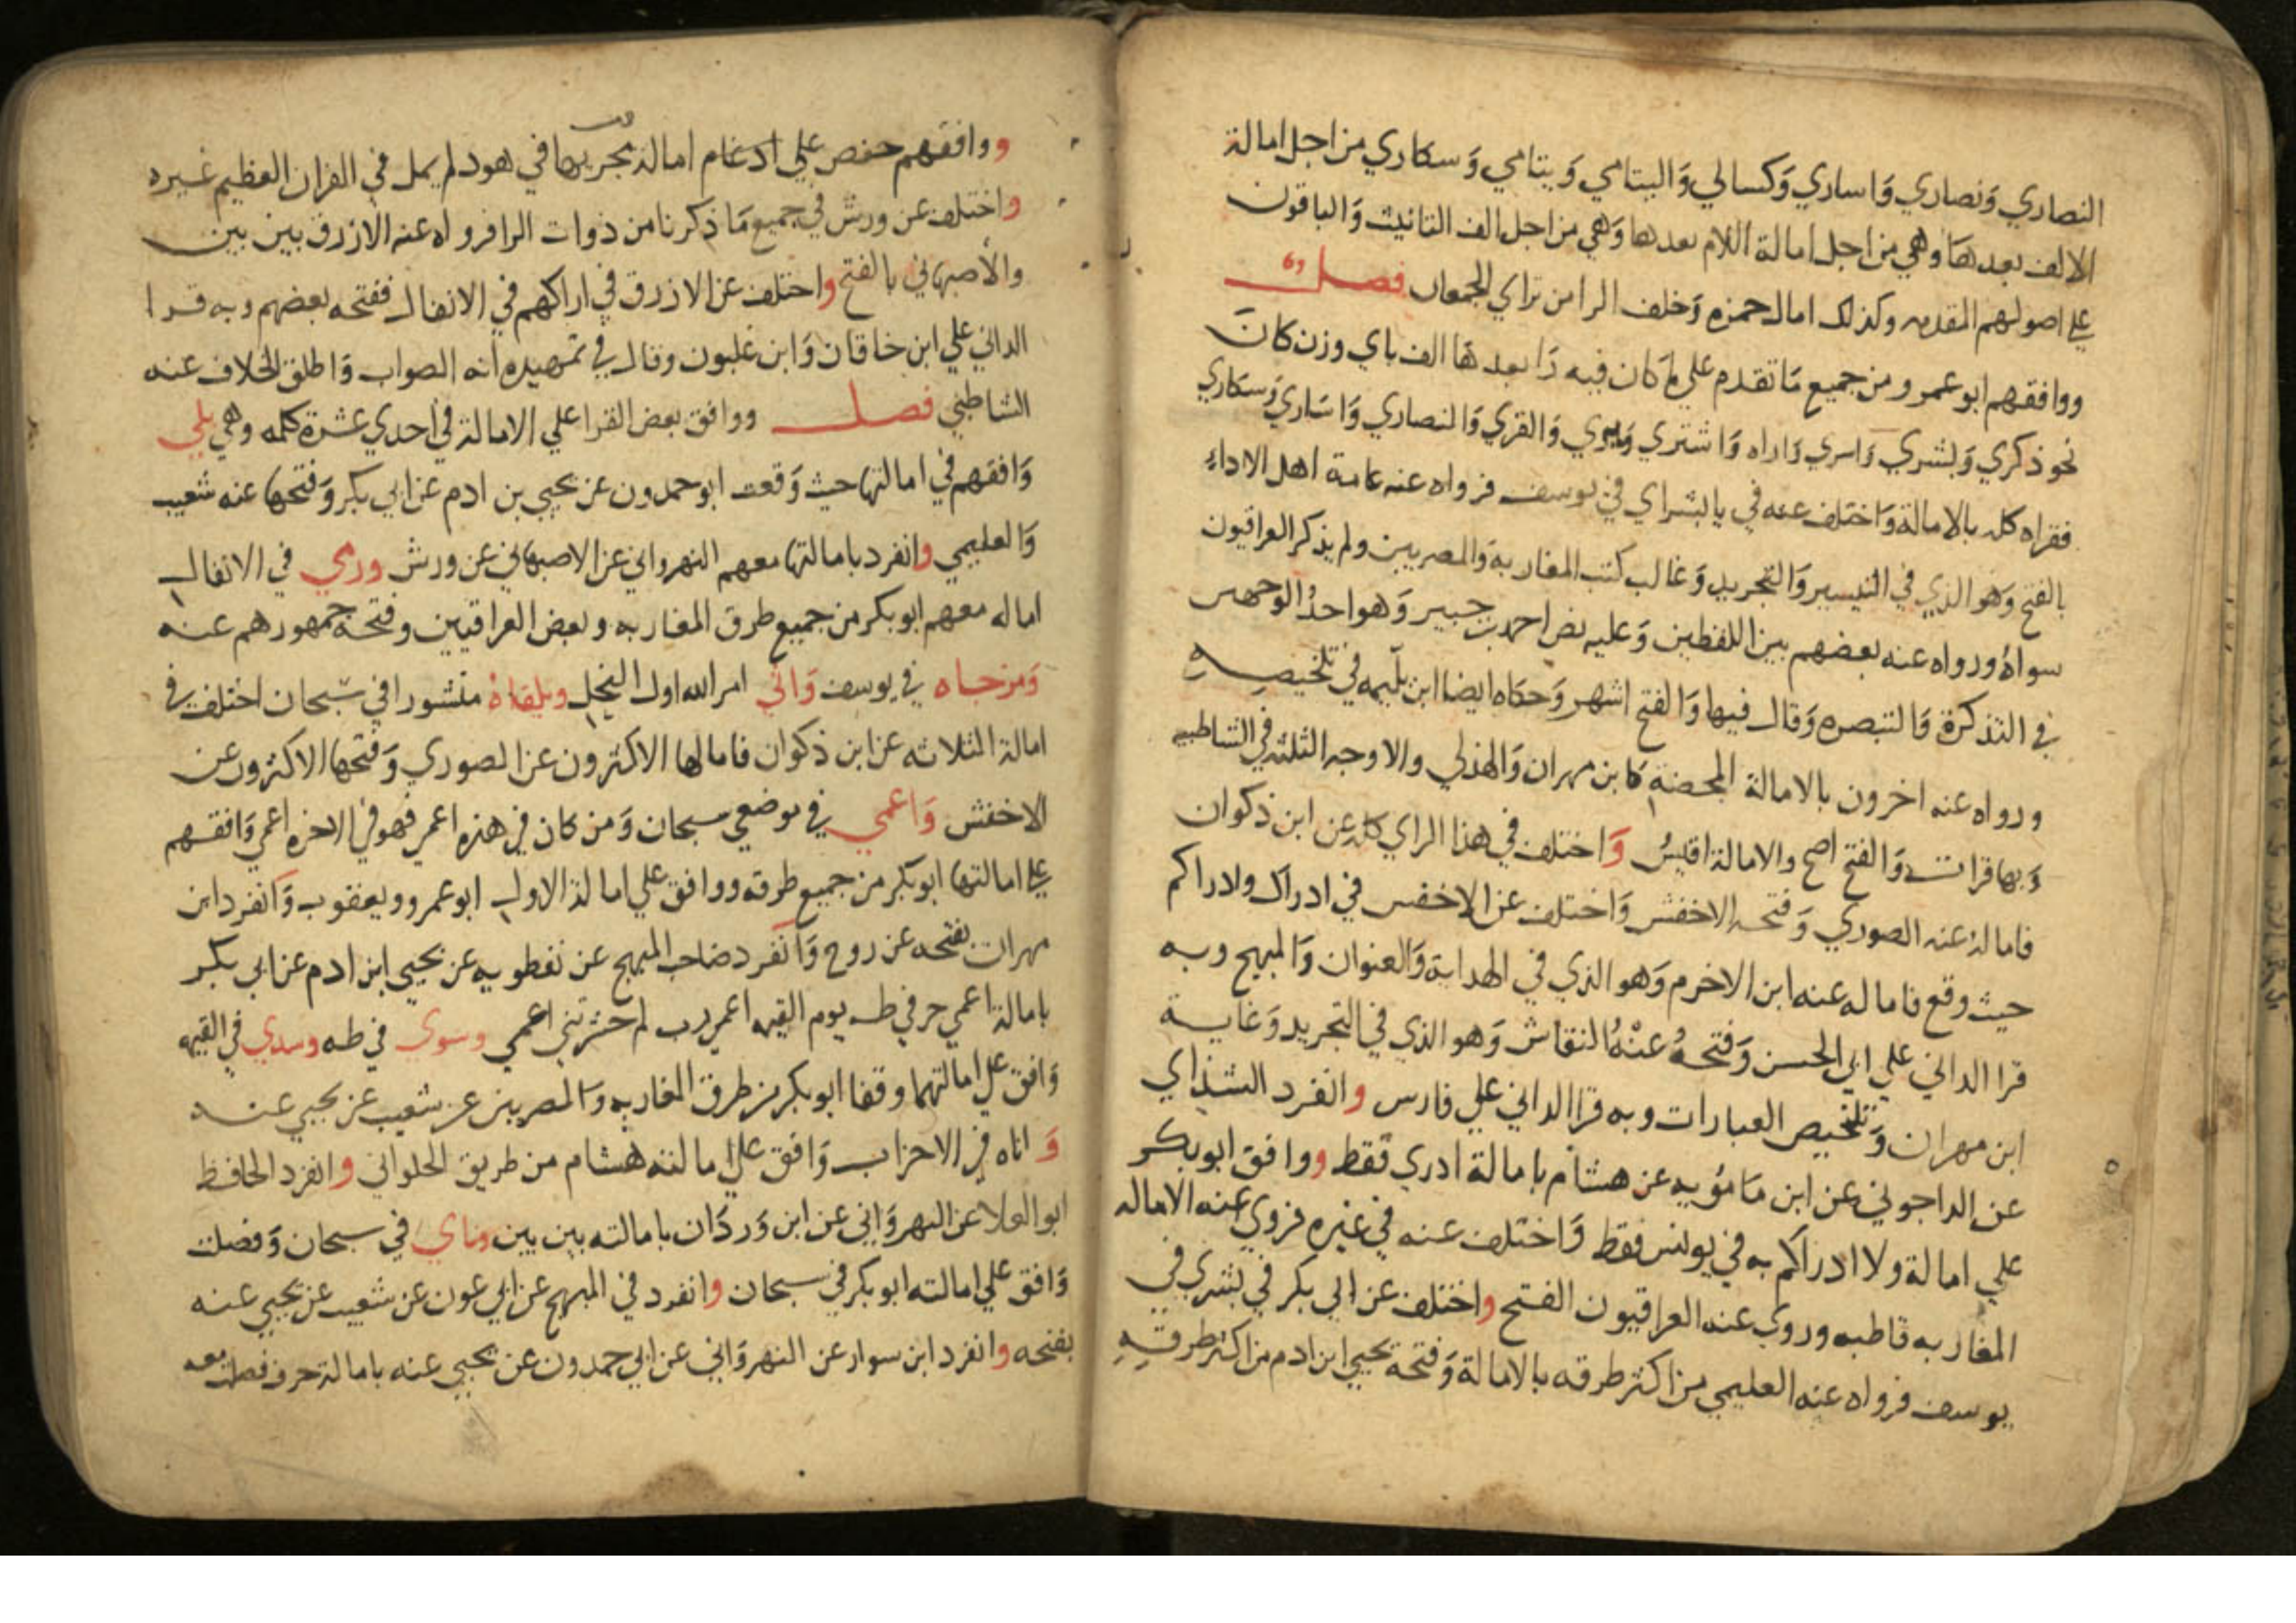 النصاري وَنصاري وَاساري وَكسالي وَاليتامي وَيتامي وَسكاري من اجل امالة
الالف بعدها وهي من اجل امالة اللام بعدها وَهي من اجل الف التانيث وَالباقون
علي اصولهم المقدمه وكذلك امال حمزه وَخلف الرا من تراي الجمعان فصل
ووافقهم ابو عمرو من جميع مَا تقدم علي مَا كان فيه رَا بعدها الف باي وزن كانَ
نحو ذكري وَبشري وَاسري وَاراه وَاشتري وَيري وَالقري وَالنصاري وَاسَاري وَسكاري
فقراه كله بالامالة وَاختلف عنه في يا بشراي في يوسف فرواه عنه عامة اهل الاداء
بالفتح وَهو الذي في التيسير وَالتجريد وَغالب كتب المغاربة وَالمصريين ولم يذكر العراقيون
سواهُ ورواه عنه بعضهم بين اللفظين وَعليه نص احمد بن جبير وَهو احدُ الوجهين
في التذكرة وَالتبصره وَقال فيها وَالفتح اشهر وَحكاه ايضا ابن بلّيمه في تلخيصهِ
ورواه عنه اخرون بالامالة المحضة كابن مهران وَالهذلي والاوجه الثلثة في الشاطبيه
وَبها قرات وَالفتح اصح والامالة اقيسُ وَاختلف في هذا الراي كله عن ابن ذكوان
فامالهُ عنه الصوري وَفتحه الاخفش وَاختلف عن الاخفش في ادراك ولادراكم
حيث وقع فاماله عنه ابن الاخرم وَهو الذي في الهداية وَالعنوان وَالمبهج وبه
قرا الداني علي ابي الحسن وَفتحهُ عنْهُ النقاش وَهو الذي في التجريد وَغاية
ابن مهران وَتلخيص العبارات وبه قرا الداني علي فارس وانفرد الشذاي
عن الداجوني عن ابن مَامُويه عن هشام بامالة ادري فقط ووافق ابو بكر
علي امالة ولا ادراكم به في يونس فقط وَاختلف عنه في غيره فروي عنه الاماله
المغاربه قاطبه وروي عنه العراقيون الفتح واختلف عن ابي بكر في بشري في
يوسف فرواه عنه العليمي من اكثر طرقه بالامالة وَفتحه يحيي ابن ادم من اكثر طرقهِ
ووافقهم حفص علي ادغام امالة مجريها في هود لم يمل في القران العظيم غيره
واختلف عن ورش في جميع مَا ذكرنا من ذوات الرا فرواه عنه الازرق بين بين
والأصبهاني بالفتح واختلف عن الازرق في اراكهم في الانفال ففتحه بعضهم وبه قرا
الداني علي ابن خاقان وَابن غلبون وقال في تمهيده انه الصواب وَاطلق الخلاف عنه
الشاطبي فصل ووافق بعض القرا علي الامالة في احدي عشرة كلمه وهي بلي
وَافقهم في امالتها حيث وَقعت ابو حمدون عن يحيي بن ادم عن ابي بكر وَفتحها عنه شعيب
وَالعليمي وانفرد بامالتها معهم النهرواني عن الاصبهاني عن ورش ورمي في الانفال
اماله معهم ابو بكر من جميع طرق المغاربه وبعض العراقيين وفتحه جمهورهم عنه
وَمزجاه في يوسف وَاتي امر الله اول النحل ويلقاهُ منشورا في سبحان اختلف في
امالة الثلاثه عن ابن ذكوان فامالها الاكثرون عن الصوري وَفتحها الاكثرون عن
الاخفش وَاعمي في موضعي سبحان وَمن كان في هذه اعمي فهو في الاخره اعمي وَافقهم
علي امالتها ابو بكر من جميع طرقه ووافق علي امالة الاول ابو عمرو ويعقوب وَانفرد ابن
مهران بفتحه عن روح وَانفرد صَاحب المبهج عن نفطويه عن يحيي ابن ادم عن ابي بكر
بامالة اعمي حرفي طه يوم القيمه اعمي رب لم حشرتني اعمي وسوي في طه وسدي في القيمه
وَافق علي امالتهما وقفا ابو بكر من طرق المغاربه وَالمصريين عن شعيب عن يحيي عنه
وَاناه في الاحزاب وَافق علي امالته هشام من طريق الحلواني وانفرد الحافظ
ابو العلا عن النهروَاني عن ابن وَردَان بامالته بين بين وناي في سبحان وَفصلت
وَافق علي امالته ابو بكر في سبحان وانفرد في المبهج عن ابي عون عن شعيب عن يحيي عنه
بفتحه وانفرد ابن سوار عن النهروَاني عن ابي حمدون عن يحيي عنه بامالة حرف فصلت معه